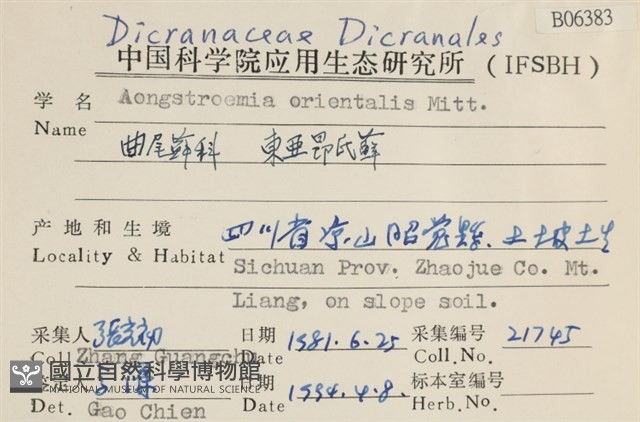 B06383
Dicranaceae Dicranales
中国科学院应用生态研究所 (IFSBH)
学名 Aongstroemia orientalis Mitt.
Name
曲尾蘚科 東亜昂氏蘚
产地和生境 四川省凉山昭觉縣.土坡土生
Locality & Habitat Sichuan Prov. Zhaojue Co. Mt.
Liang, on slope soil.
采集人 張光初 日期 1981.6.25 采集编号 21745
Coll. Zhang Guangchu Date Coll.No.
國立自然科學博物館 日期 1994.4.8. 标本室编号
NATIONAL MUSEUM OF NATURAL SCIENCE
Det. Gao Chien Date Herb.No.